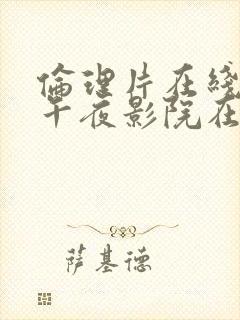 倫理片在綫
午夜影院在
萨基德